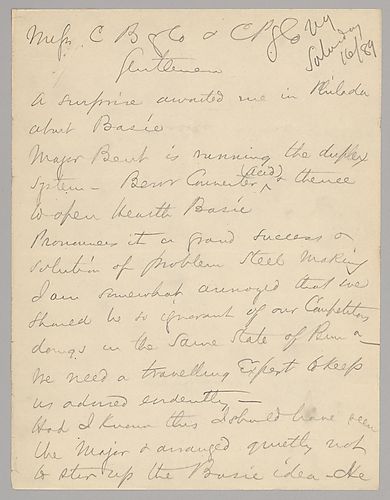 Messrs C B & Co & C P & Co NY
Saturday
16/89
Gentlemen
A surprise awaited me in Philada
about Basic
Major Bent is running the duplex
system - Bessr Converter (acid) & thence
to open Hearth Basic
Pronounces it a grand success &
solution of problem Steel Making
I am somewhat annoyed that we
should be so ignorant of our Competitors
doings in the Same State of Penn a -
We need a travelling Expert to keep
us advised evidently -
Had I known this I should have seen
the Major & arranged quietly not
to stir up the Basic idea - He